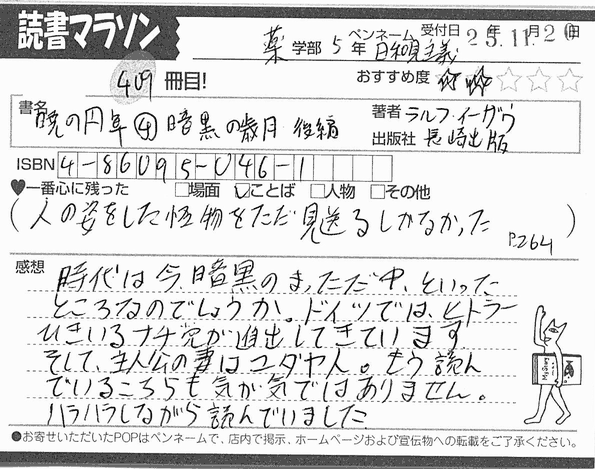 読書マラソン
ペンネーム 受付日 年 月 日
薬 学部 5 年 日和見主義 25.11.20
409 冊目!
おすすめ度 ☆☆☆☆☆
書名 暁の円卓④暗黒の歳月 後編
著者 ラルフ・イーザウ
出版社 長崎出版
ISBN 4-86095-046-1
♥一番心に残った □場面 ☑ことば □人物 □その他
(人の姿をした怪物をただ見送るしかなかった P.264)
感想 時代は今、暗黒のまっただ中、といった
ところなのでしょうか。ドイツでは、ヒトラー
ひきいるナチ党が進出してきています
そして、主人公の妻はユダヤ人。もう読ん
でいるこちらも気が気ではありません。
ハラハラしながら読んでいました
●お寄せいただいたPOPはペンネームで、店内で掲示、ホームページおよび宣伝物への転載をご了承ください。